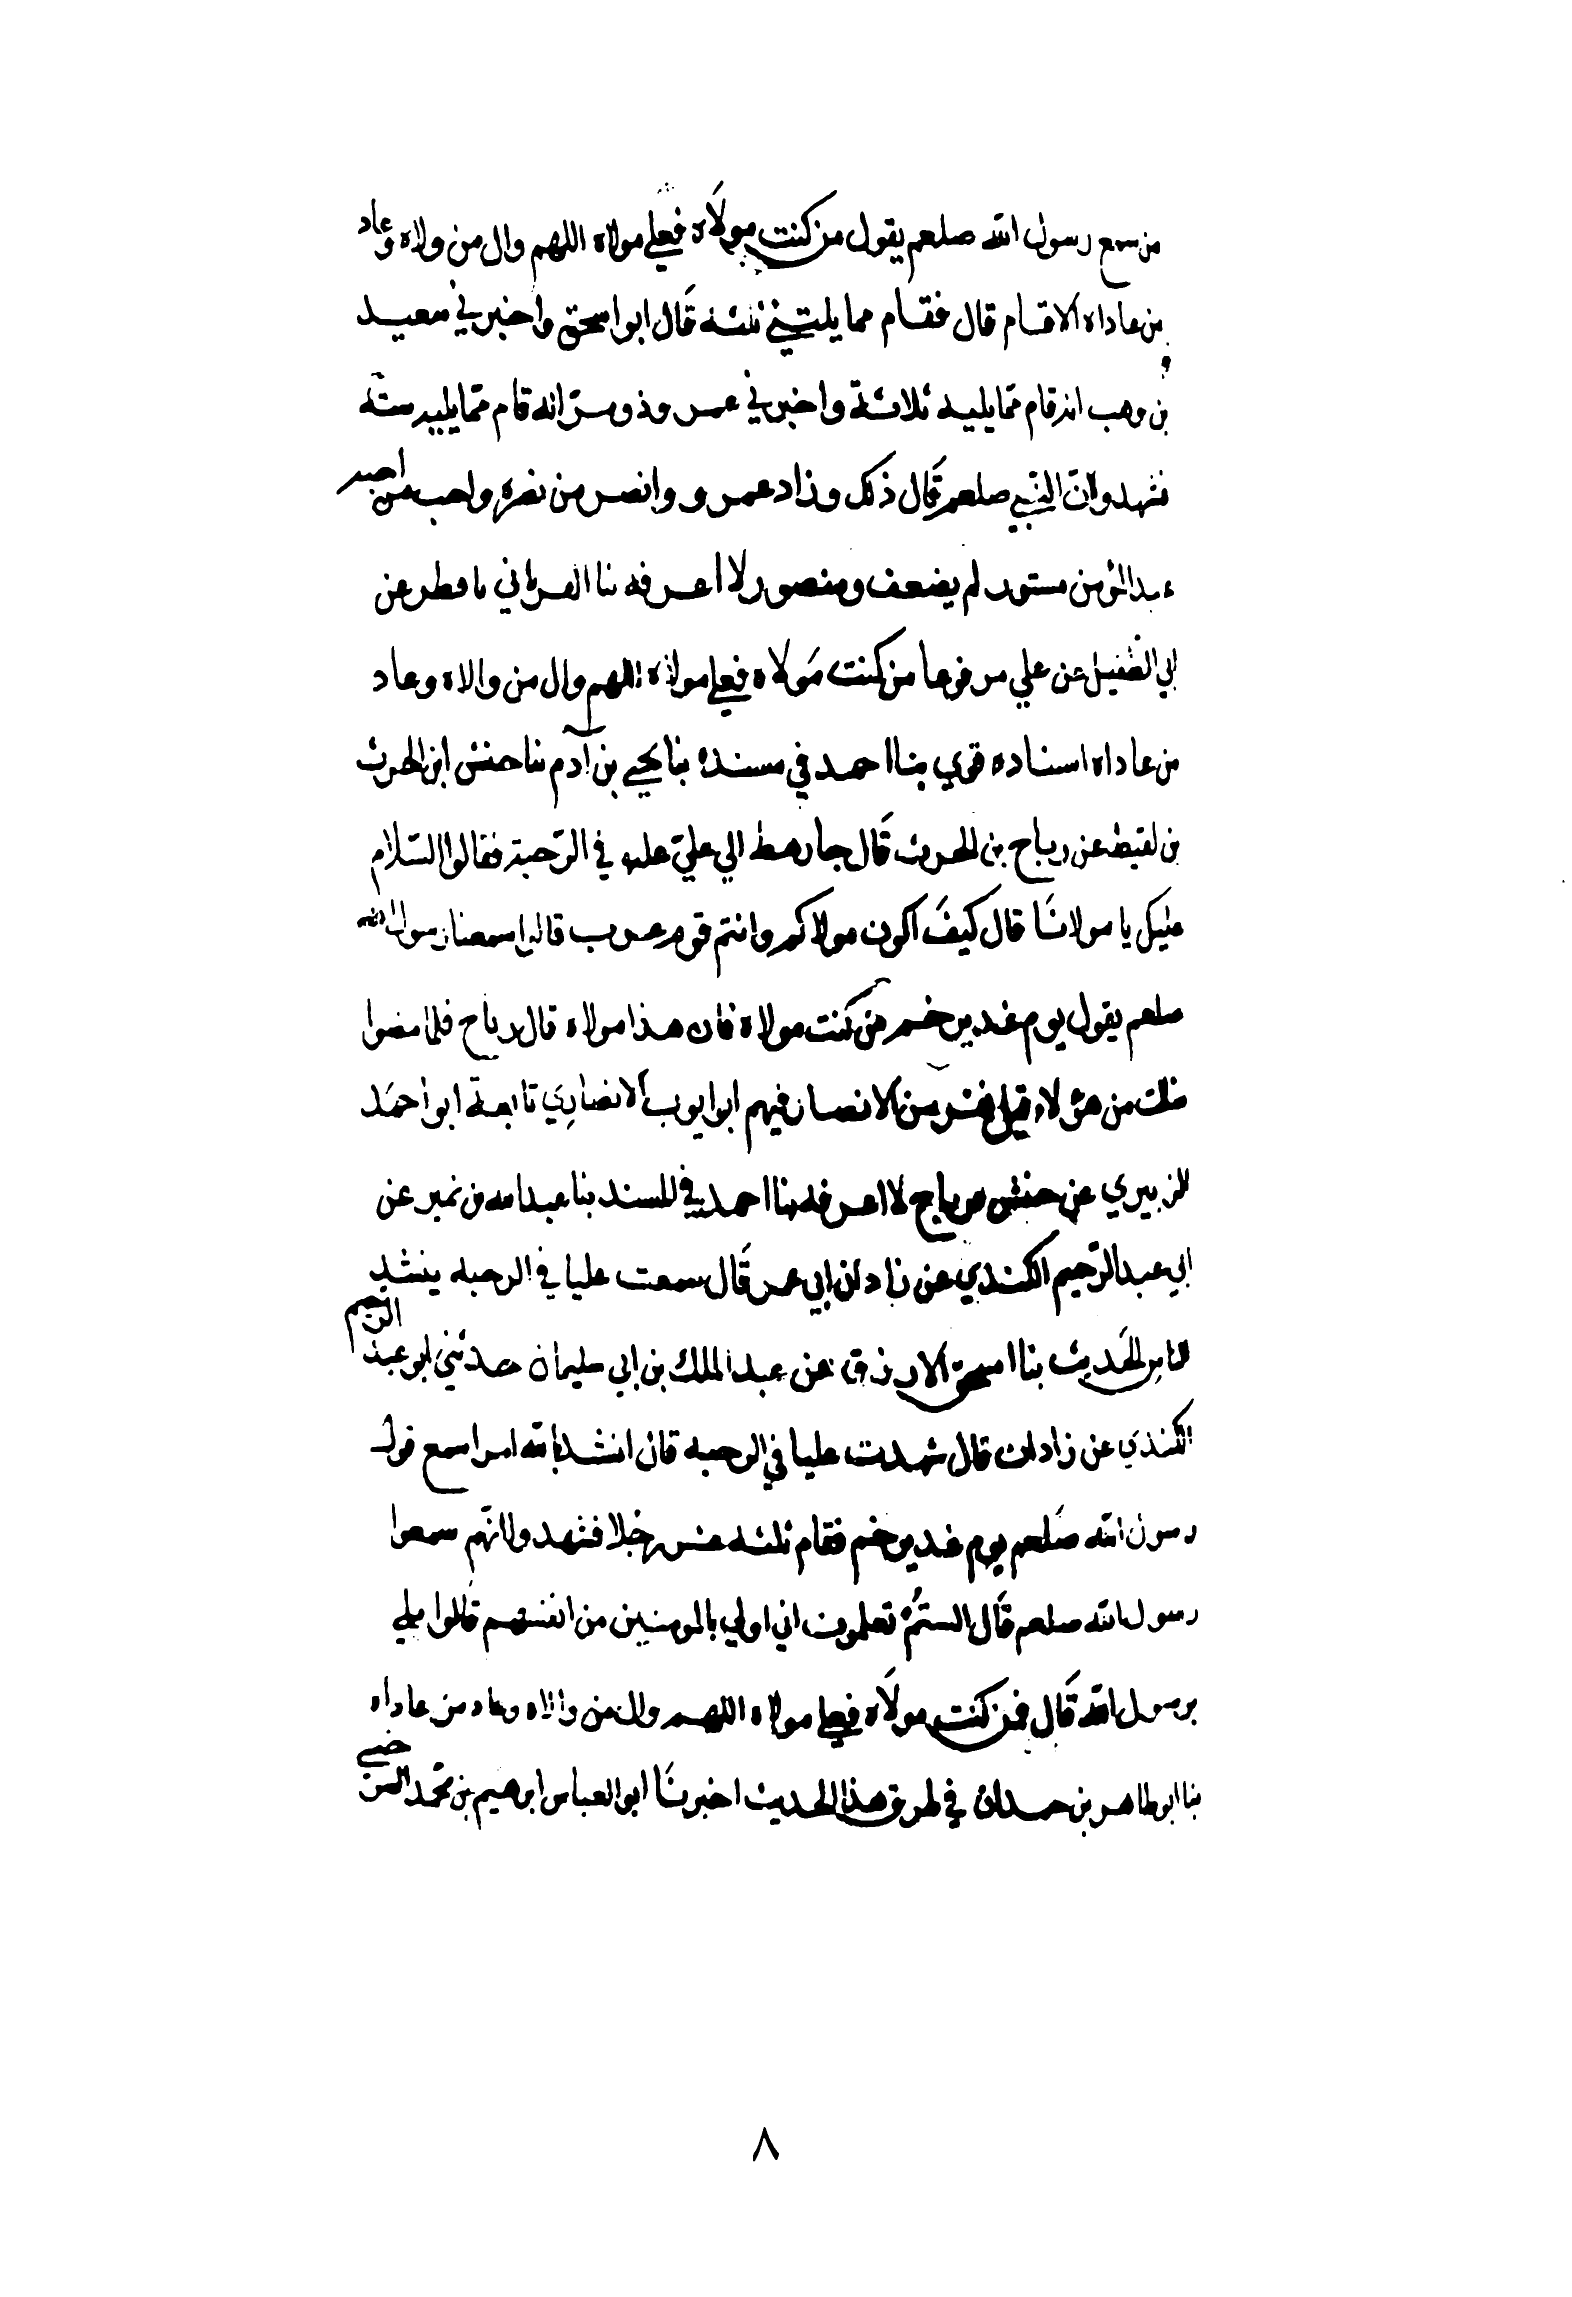 من سمع رسول الله صلعم يقول من كنت مولاه فعلي مولاه اللهم وال من والاه وعاد
من عاداه الا قام قال فقام مما يلتيني ثلثه قال ابو اسحق واخبرني سعيد
بن وهب انه قام مما يليه ثلاثة واخبرني عمرو ذو مر انه قام مما يليه ستة
فشهدوا ان النبي صلعم قال ذلك وزاد عمرو وانصر من نصره واحب من احبه
عبد المؤمن مستور لم يضعف ومنصور لا اعرفه ثنا الفرياني نا فطر عن
ابي الطفيل عن علي مرفوعا من كنت مولاه فعلي مولاه اللهم وال من والاه وعاد
من عاداه اسناده قوي ثنا احمد في مسنده ثنا يحيى بن آدم ثنا حنش ابن الحرث
بن لقيط عن رباح بن الحرث قال جا رهط الي علي عليه في الرحبة فقالوا السلام
عليك يا مولانا قال كيف اكون مولاكم وانتم قوم عرب قالوا سمعنا رسول الله
صلعم يقول يوم غدير خم من كنت مولاه فان هذا مولاه قال رباح فلما مضوا
قلت من هؤلاء قيل نفر من الانصار فيهم ابو ايوب الانصاري تابعه ابو احمد
الزبيري عن حنش ورباح لا اعرفه ثنا احمد في المسند ثنا عبد الله بن نمير عن
ابي عبد الرحيم الكندي عن زاذان ابي عمر قال سمعت عليا في الرحبه ينشد
الناس الحديث ثنا اسحق الازرق عن عبد الملك بن ابي سليمان حدثني ابو عبد الرحيم
الكندي عن زاذان قال شهدت عليا في الرحبه قال انشد بالله امرا سمع قول
رسول الله صلعم يوم غدير خم فقام ثلثه عشر رجلا فشهدوا انهم سمعوا
رسول الله صلعم قال الستم تعلمون اني اولي بالمومنين من انفسهم قالوا بلي
يرسول الله قال فمن كنت مولاه فعلي مولاه اللهم وال من والاه وعاد من عاداه
ثنا ابو طاهر بن حمدان في طرق هذا الحديث اخبرنا ابو العباس ابرهيم بن محمد السرخسي
٨